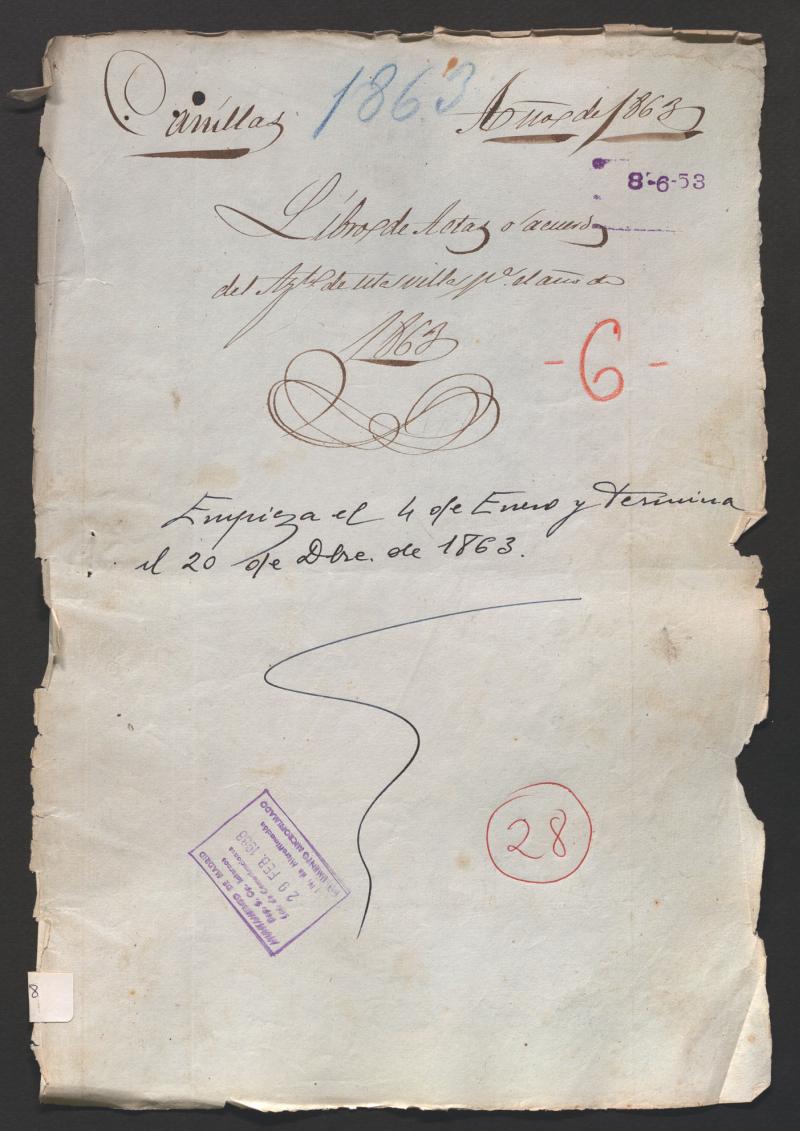 Canillas 1863 Año de 1863
8-6-53
Libro de Actas o acuerdos
del Aytº de esta villa pª el año de
1863
- 6 -
Empieza el 4 de Enero y Termina
el 20 de Dbre. de 1863.
28
AYUNTAMIENTO DE MADRID
Dep. S. Gp. Internos
29 FEB. 1988
DOCUMENTO MICROFILMADO
8